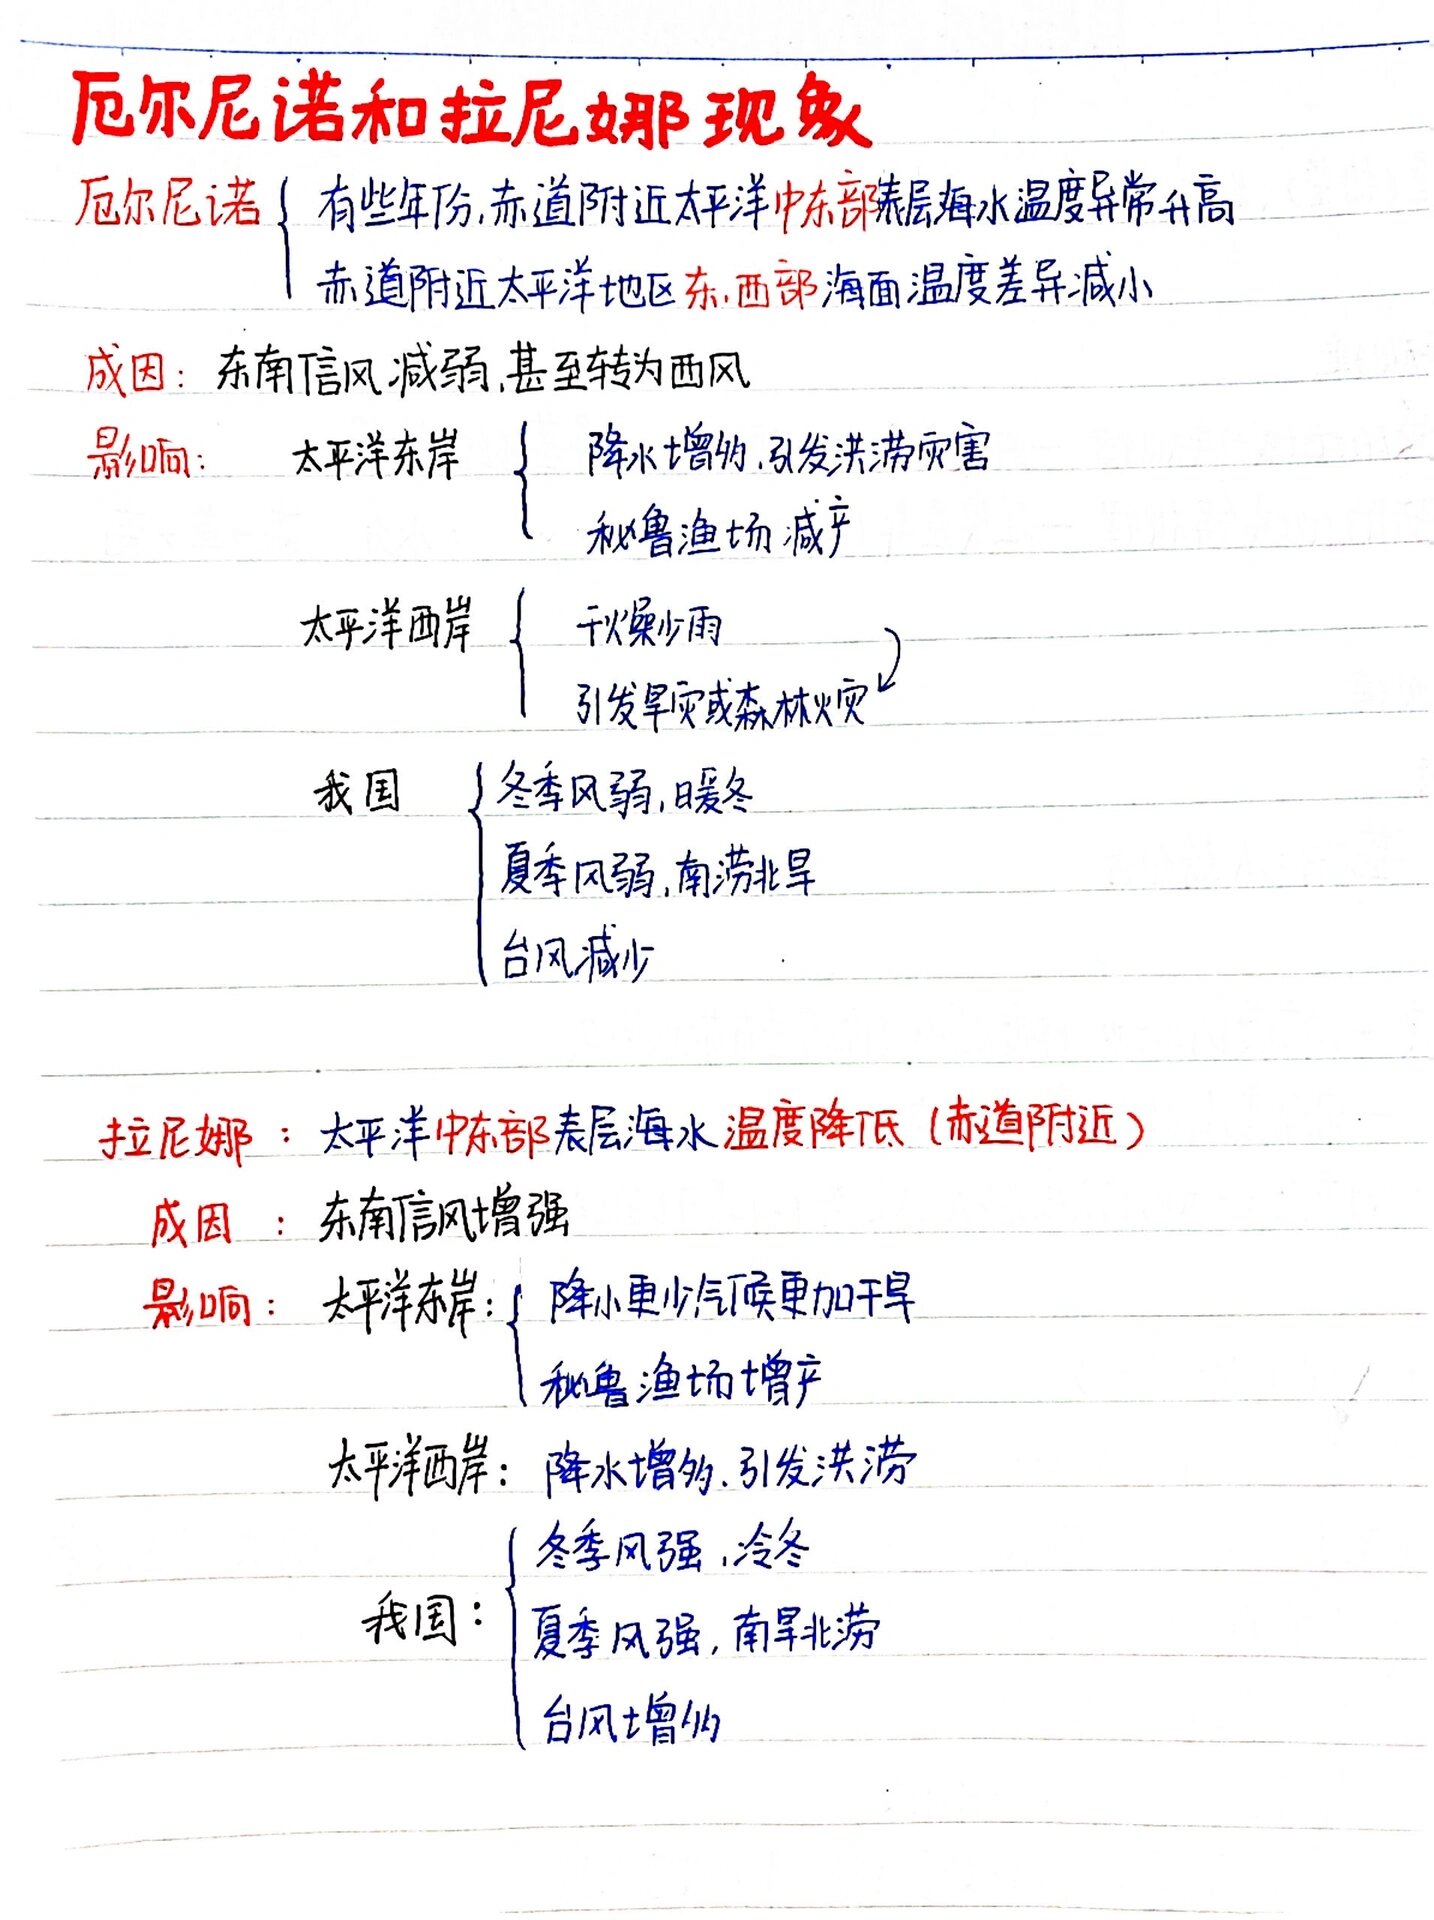 厄尔尼诺和拉尼娜现象
厄尔尼诺 { 有些年份,赤道附近太平洋中东部表层海水温度异常升高
赤道附近太平洋地区东、西部海面温度差异减小
成因: 东南信风减弱,甚至转为西风
影响: 太平洋东岸 { 降水增多,引发洪涝灾害
秘鲁渔场减产
太平洋西岸 { 干燥少雨
引发旱灾或森林火灾
我国 { 冬季风弱,暖冬
夏季风弱,南涝北旱
台风减少
拉尼娜: 太平洋中东部表层海水温度降低(赤道附近)
成因: 东南信风增强
影响: 太平洋东岸: { 降小更少气候更加干旱
秘鲁渔场增产
太平洋西岸: 降水增多,引发洪涝
我国: { 冬季风强,冷冬
夏季风强,南旱北涝
台风增多